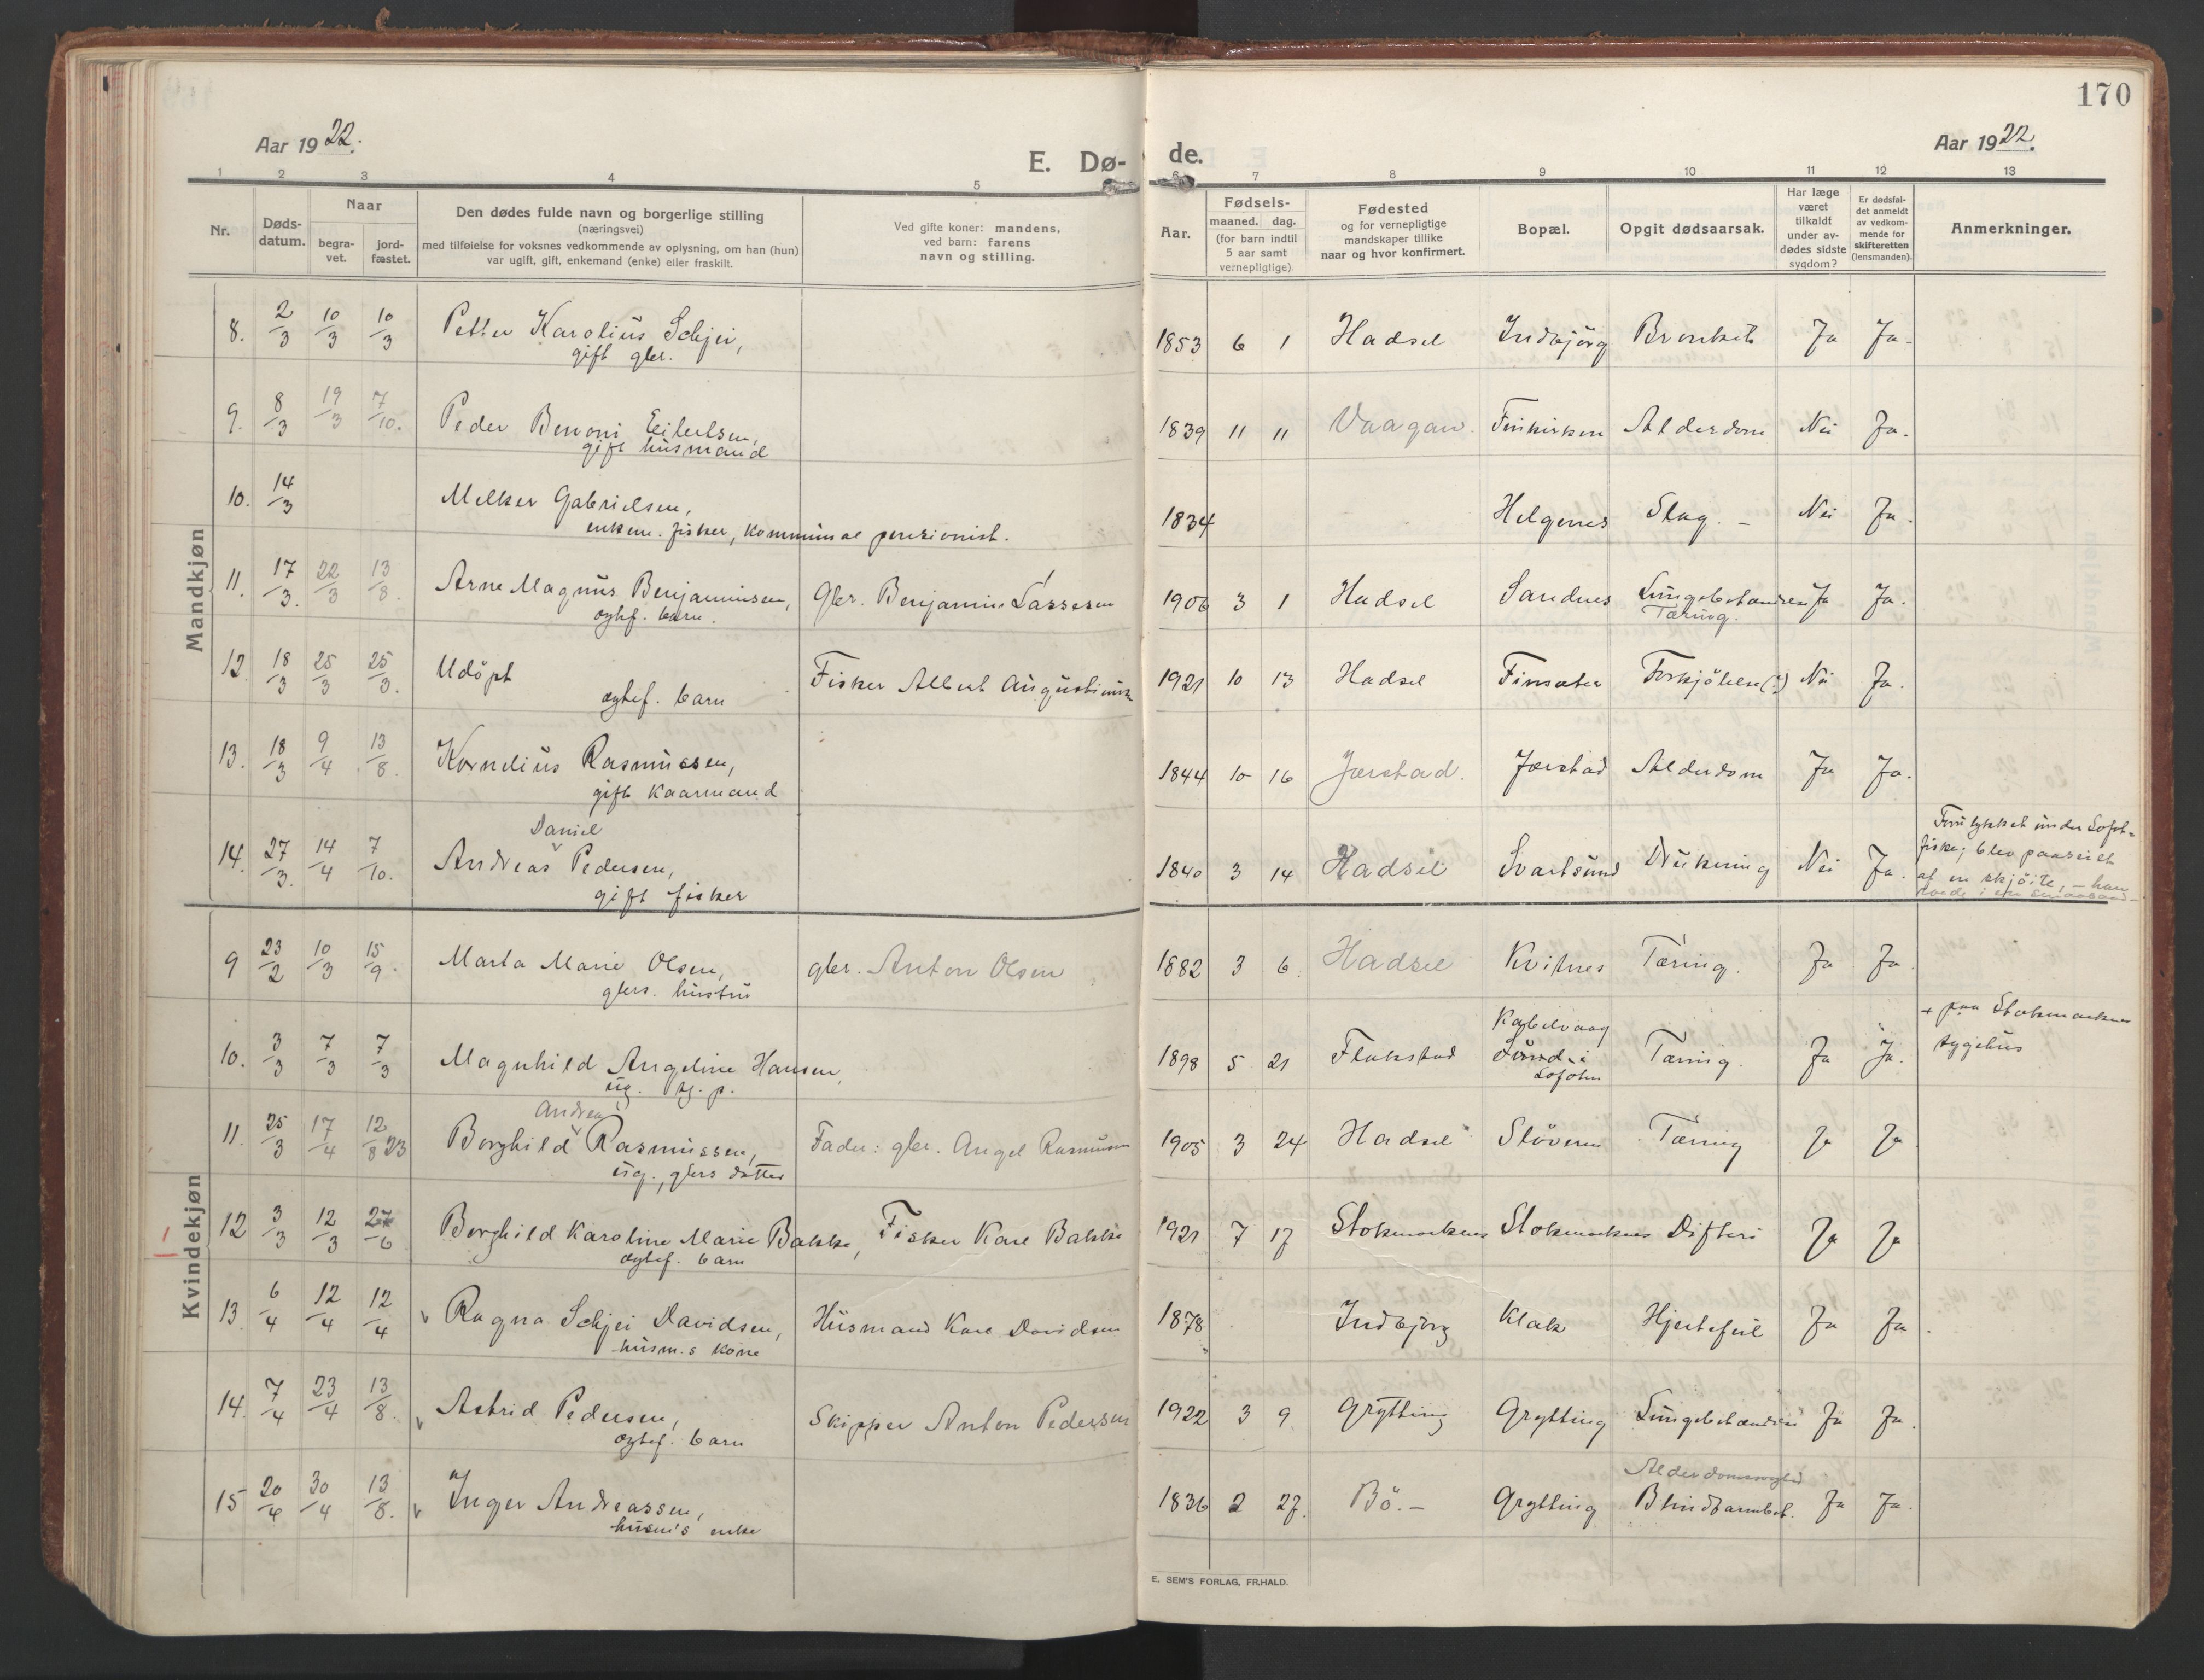 170
Aar 1922.
E. Dø-
de.
Aar 1922.
1 2 3 4 5 6 7 8 9 10 11 12 13
Nr.
Døds-
datum.
Naar
begra-
vet.
jord-
fæstet.
Den dødes fulde navn og borgerlige stilling
(næringsvei)
med tilføielse for voksnes vedkommende av oplysning, om han (hun)
var ugift, gift, enkemand (enke) eller fraskilt.
Ved gifte koner: mandens,
ved barn: farens
navn og stilling.
Aar.
Fødsels-
maaned. dag.
(for barn indtil
5 aar samt
vernepligtige)
Fødested
og for vernepligtige
mandskaper tillike
naar og hvor konfirmert.
Bopæl.
Opgit dødsaarsak.
Har læge
været
tilkaldt
under av-
dødes sidste
sygdom?
Er dødsfal-
det anmeldt
av vedkom-
mende for
skifteretten
(lensmanden).
Anmerkninger.
Mandkjøn
8. 2/3 10/3 10/3 Petter Karolius Schjei, 1853 6 1 Hadsel Indbjörg Bronkit Ja Ja.
gift gbr.
9. 8/3 19/3 7/10. Peder Benoni Eilertsen, 1839 11 11 Vaagan. Alderdom Nei Ja.
gift husmand
10. 14/3 Melker Gabrielsen, 1834 Helgenes Slag. – Nei Ja.
enkem. fisker, kommunal pensionist.
11. 17/3. 22/3 13/8. Arne Magnus Benjaminsen, Gbr. Benjamin Lassesen 1906 3 1 Hadsel Sandnes Lungebetændelse Ja Ja.
ogtef. barn. Tæring.
12. 18/3 25/3 25/3. Udöpt Fisker Albert Augustinus 1921 10 13 Hadsel Finsæter Forkjölelse(?) Nei Ja.
ogtef. barn
13. 18/3 9/4 13/8. Kornelius Rasmussen, 1844 10 16 Jørstad. Jørstad Alderdom Ja Ja.
gift kaarmand
Daniel
14. 27/3. 14/4 7/10. Andreas Pedersen, 1840 3 14 Hadsel Svartsund Drukning Nei Ja.
gift fisker
Forulykket under Lofot-
fiske; blev paaseilt
af en skjöite, – han
Kvindekjøn
9 23/2 10/3 15/9. Marta Marie Olsen, gbr. Anton Olsen 1882 3 6. Hadsel Kvitnes Tæring. Ja Ja
gbrs. hustru
Kabelvaag
10. 3/3 7/3 7/3 Magnhild Angeline Hansen, 1898 5 21 Flakstad Sund i Tæring. Ja Ja.
ug. tj. p. Lofoten
+ paa Stokmarknes
sygehus
Andrea
11. 25/3 17/4 12/8 23 Borghild Rasmussen, Fader: gbr. Angel Rasmussen 1905 3 24 Hadsel Stöveren Tæring Ja Ja
ug., gbrs datter
12 3/3 12/3 27/6 Borghild Karoline Marie Bakke, Fisker Karl Bakke 1921 7 17 Stokmarknes Stokmarknes Difteri Ja Ja
ogtef. barn
13 6/4 12/4 12/4 Ragna Schjei Davidsen, Husmand Kare Davidsen 1878 Indbjörg Klak Hjertefeil Ja Ja.
husm.s kone
14. 7/4 23/4 13/8. Astrid Pedersen, Skipper Anton Pedersen 1922 3 9 Grytting Grytting Lungebetændelse Ja Ja.
ogtef. barn
Alderdomssvaghed
15 20/4 30/4 13/8. Inger Andreassen, 1836 2 27. Bö. – Grytting Blindtarmbet. Ja Ja.
husm's enke
E. SEM'S FORLAG, FR.HALD.